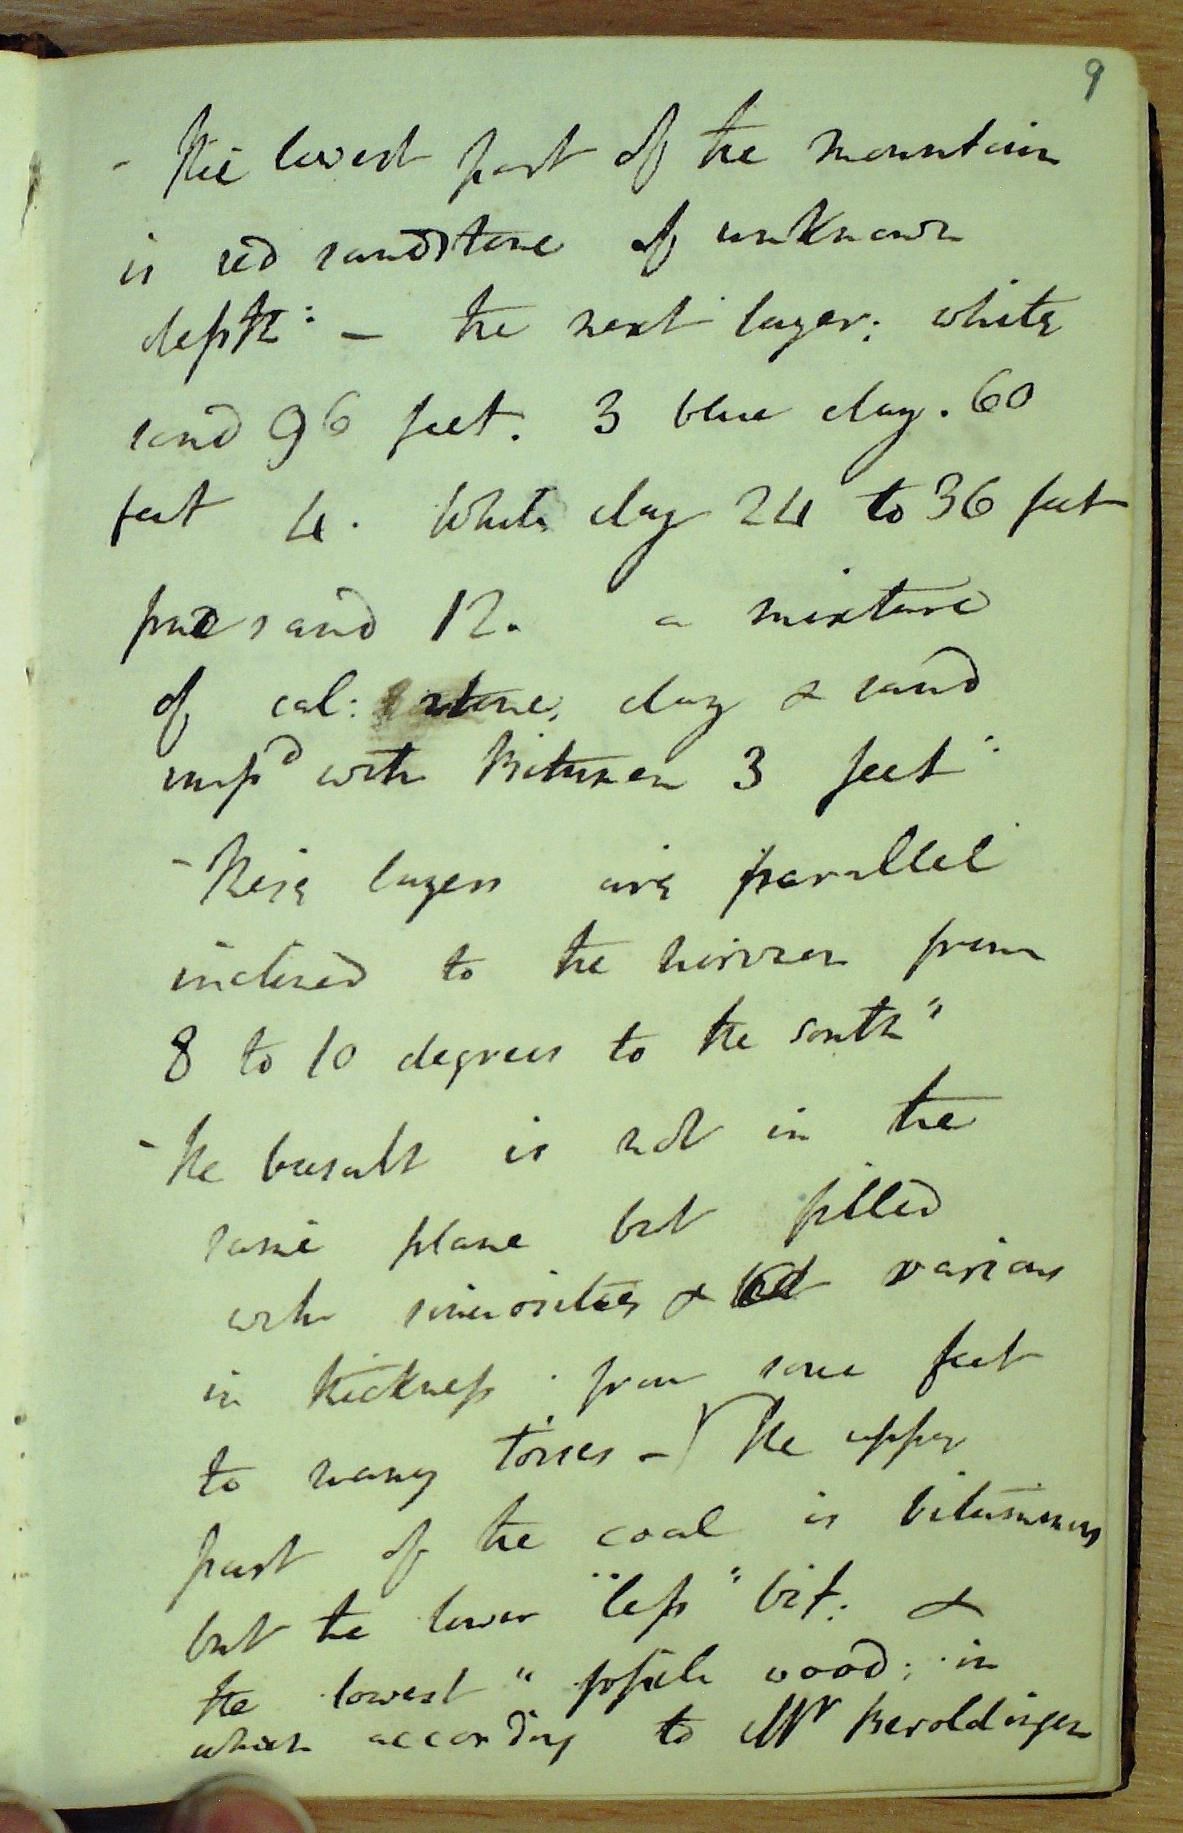 9
- The lowest part of the mountain
is red sandstone of unknown
depth: - the next layer; white
sand 96 feet. 3 blue clay. 60
feet 4. White clay 24 to 36 feet
sand 12. a mixture
of cal: stone, clay & sand
imp^d with Bitumen 3 feet
- These layers are parallel
inclined to the horizon from
8 to 10 degrees to the south"
- The basalt is not in the
same plane but filled
with sinuosities & various
in thickness from some feet
to many toises - The upper
part of the coal is bituminous
but the lower "less" bit: &
the lowest " fossile wood; in
which according to M^r Beroldingen